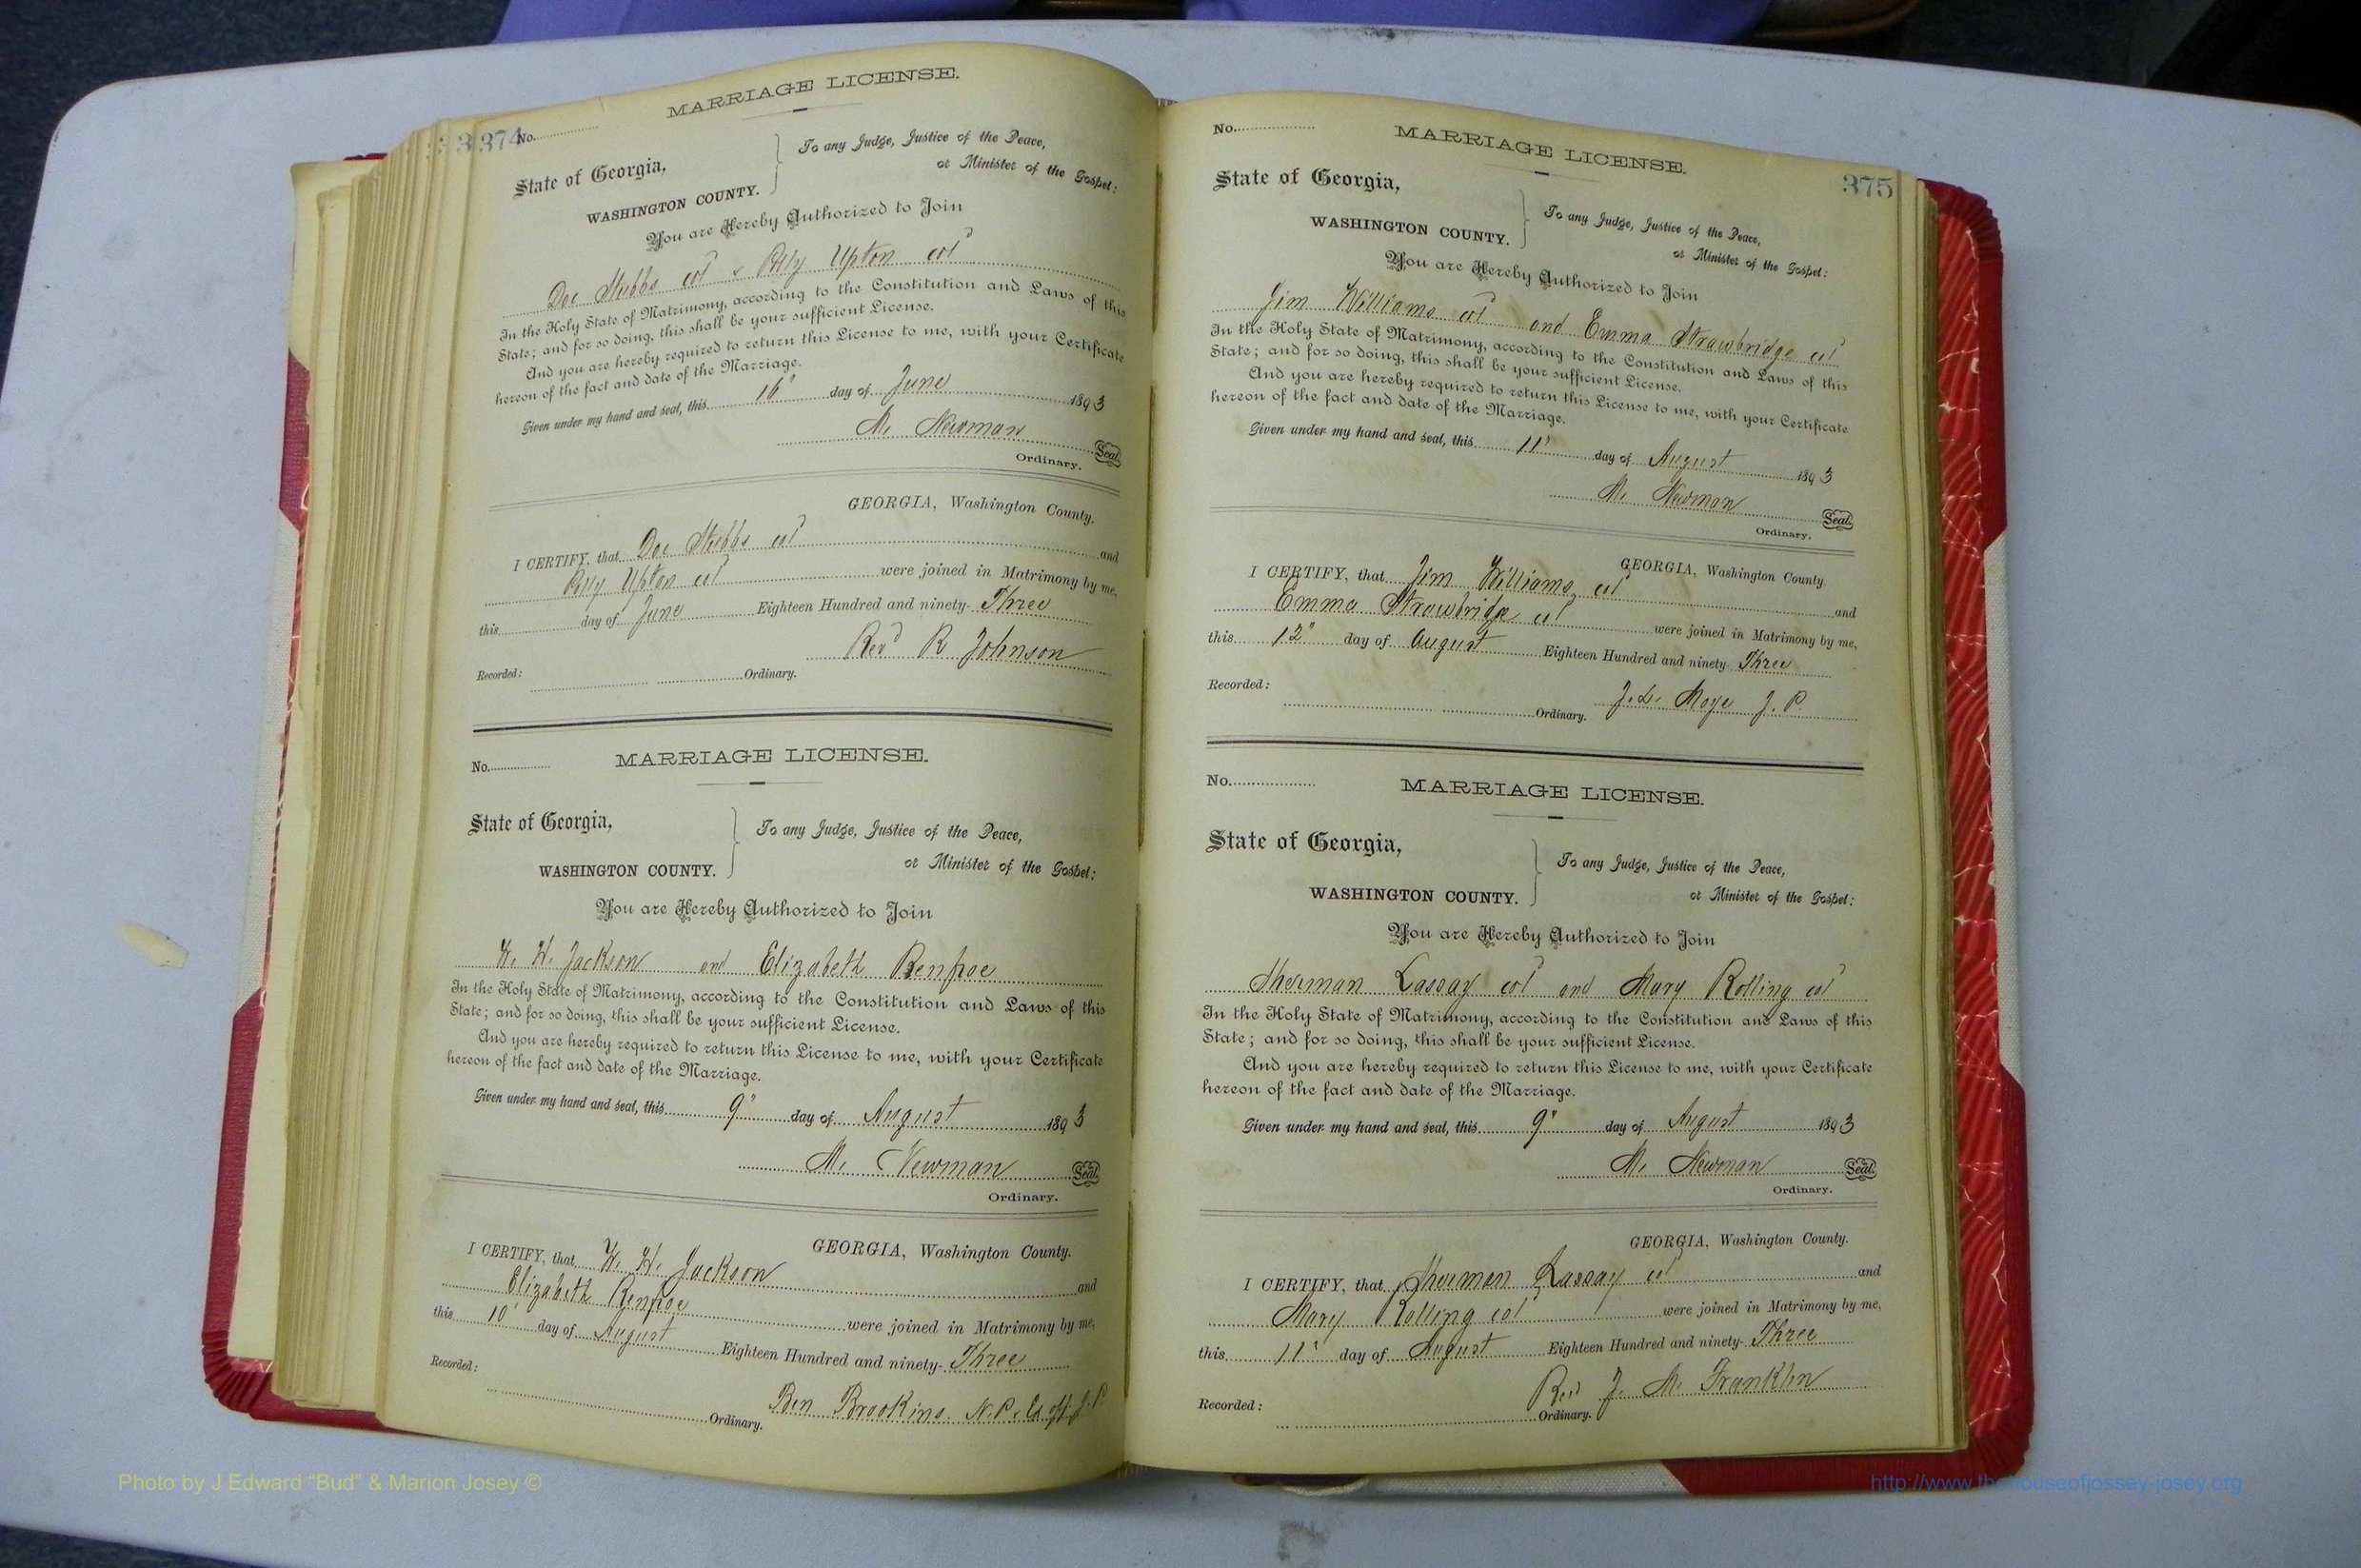 374
No.
MARRIAGE LICENSE.
State of Georgia,
WASHINGTON COUNTY.
To any Judge, Justice of the Peace,
or Minister of the Gospel:
You are Hereby Authorized to Join
Doc Stubbs col & Upton col
In the Holy State of Matrimony, according to the Constitution and Laws of this
State; and for so doing, this shall be your sufficient License.
And you are hereby required to return this License to me, with your Certificate
hereon of the fact and date of the Marriage.
Given under my hand and seal, this 16" day of June 1893
M. Newman Seal.
Ordinary.
GEORGIA, Washington County.
I CERTIFY, that Doc Stubbs col and
Upton col were joined in Matrimony by me,
this day of June Eighteen Hundred and ninety-Three
Rev R Johnson
Recorded: Ordinary.
No. MARRIAGE LICENSE.
State of Georgia,
WASHINGTON COUNTY.
To any Judge, Justice of the Peace,
or Minister of the Gospel:
You are Hereby Authorized to Join
W. H. Jackson and Elizabeth Renfroe
In the Holy State of Matrimony, according to the Constitution and Laws of this
State; and for so doing, this shall be your sufficient License.
And you are hereby required to return this License to me, with your Certificate
hereon of the fact and date of the Marriage.
Given under my hand and seal, this 9" day of August 1893
M. Newman Seal.
Ordinary.
GEORGIA, Washington County.
I CERTIFY, that W. H. Jackson and
Elizabeth Renfroe were joined in Matrimony by me,
this 10" day of August Eighteen Hundred and ninety-Three
Recorded: Ordinary. Ben Brookins. N.P. & Ex off. J.P.
No. MARRIAGE LICENSE.
375
State of Georgia,
WASHINGTON COUNTY.
To any Judge, Justice of the Peace,
or Minister of the Gospel:
You are Hereby Authorized to Join
Jim Williams col and Emma Strawbridge col
In the Holy State of Matrimony, according to the Constitution and Laws of this
State; and for so doing, this shall be your sufficient License.
And you are hereby required to return this License to me, with your Certificate
hereon of the fact and date of the Marriage.
Given under my hand and seal, this 11" day of August 1893
M. Newman Seal.
Ordinary.
GEORGIA, Washington County.
I CERTIFY, that Jim Williams, col and
Emma Strawbridge col were joined in Matrimony by me,
this 12" day of August Eighteen Hundred and ninety-Three
J. L. Moye J. P.
Recorded: Ordinary.
No. MARRIAGE LICENSE.
State of Georgia,
WASHINGTON COUNTY.
To any Judge, Justice of the Peace,
or Minister of the Gospel:
You are Hereby Authorized to Join
Sherman Lassay col and Mary Rolling col
In the Holy State of Matrimony, according to the Constitution and Laws of this
State; and for so doing, this shall be your sufficient License.
And you are hereby required to return this License to me, with your Certificate
hereon of the fact and date of the Marriage.
Given under my hand and seal, this 9" day of August 1893
M. Newman Seal.
Ordinary.
GEORGIA, Washington County.
I CERTIFY, that Sherman Lassay col and
Mary Rolling col were joined in Matrimony by me,
this 11" day of August Eighteen Hundred and ninety-Three
Rev J. M. Franklin
Recorded: Ordinary.
Photo by J Edward “Bud” & Marion Josey ©
http://www.thehouseofjossey-josey.org